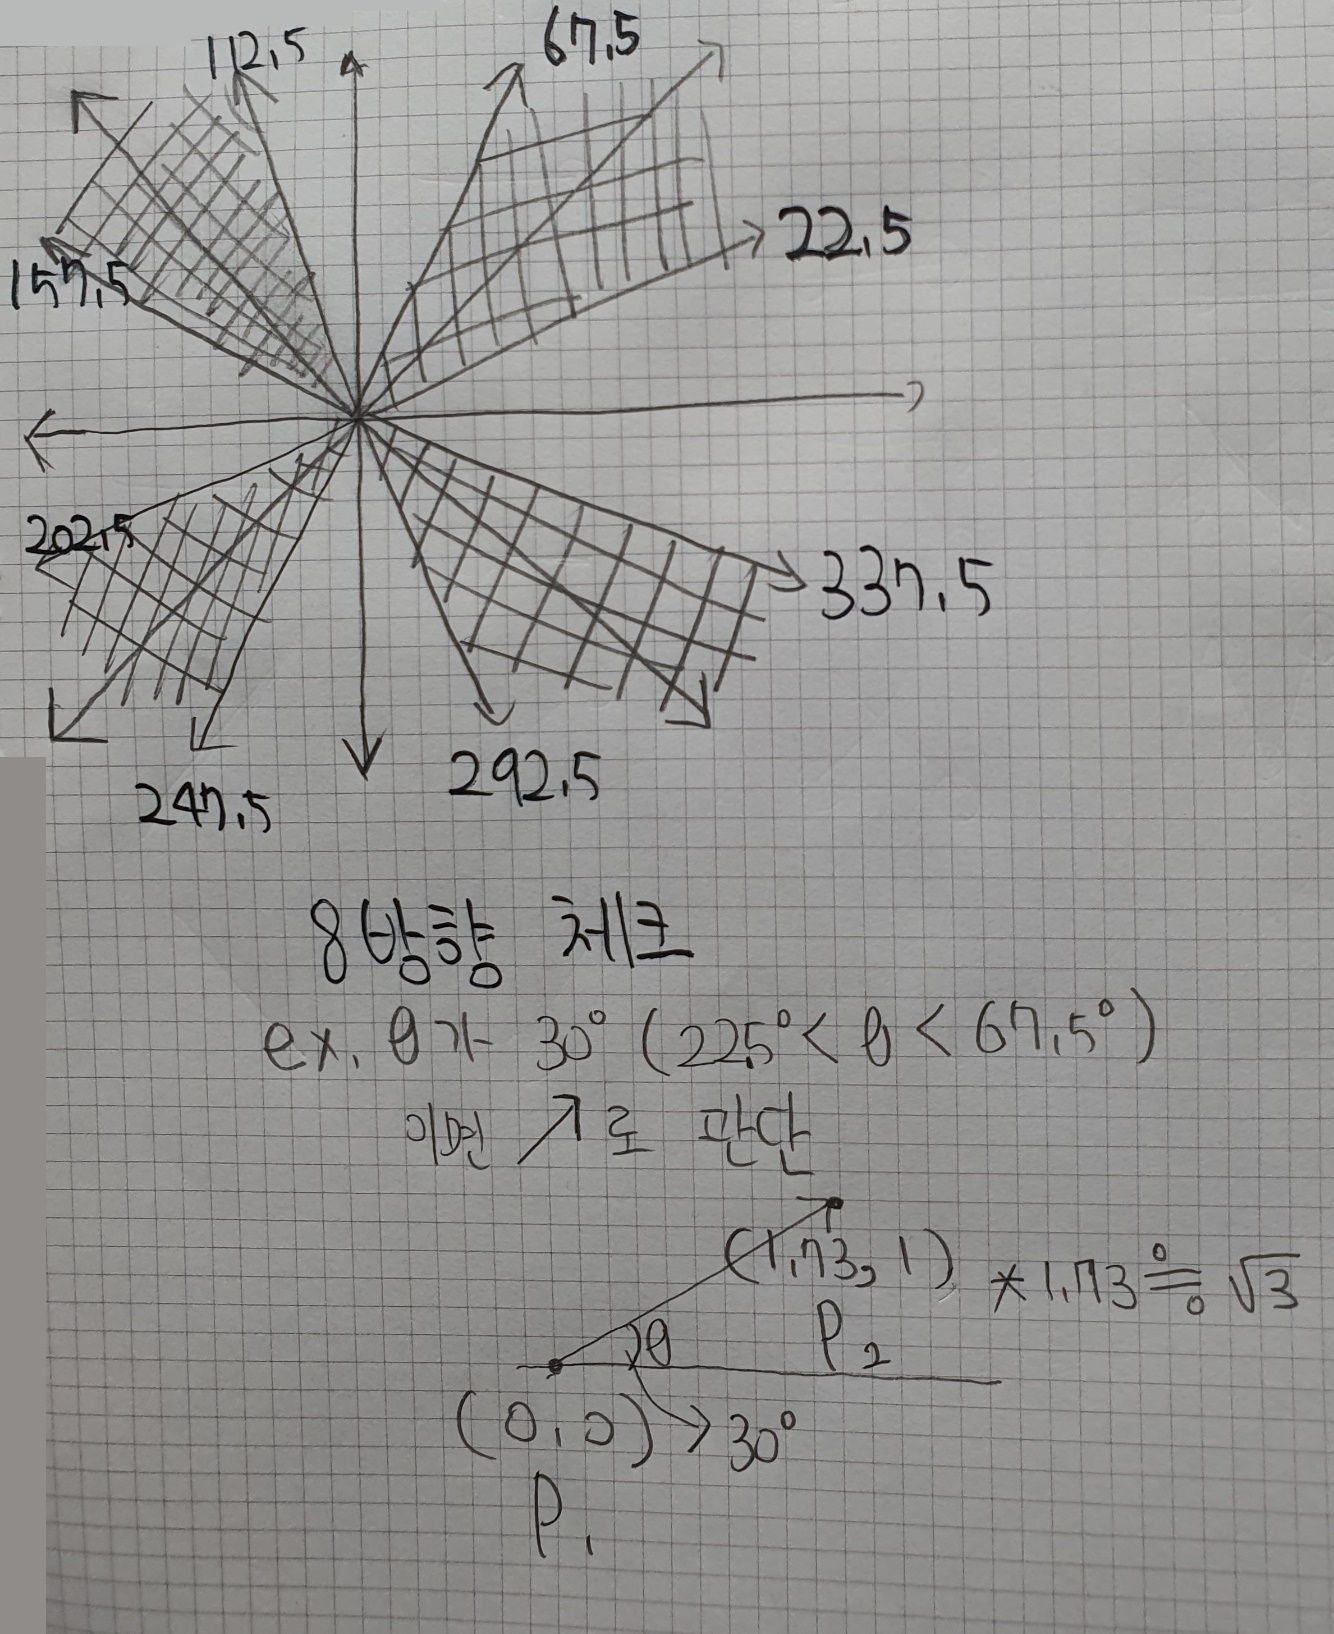 112.5
67.5
22.5
157.5
202.5
337.5
247.5
292.5
8방향 체크
ex. θ가 30° (22.5° < θ < 67.5°)
이면 ↗로 판단
(1.73, 1) *1.73≒√3
θ P₂
(0,0) → 30°
P₁